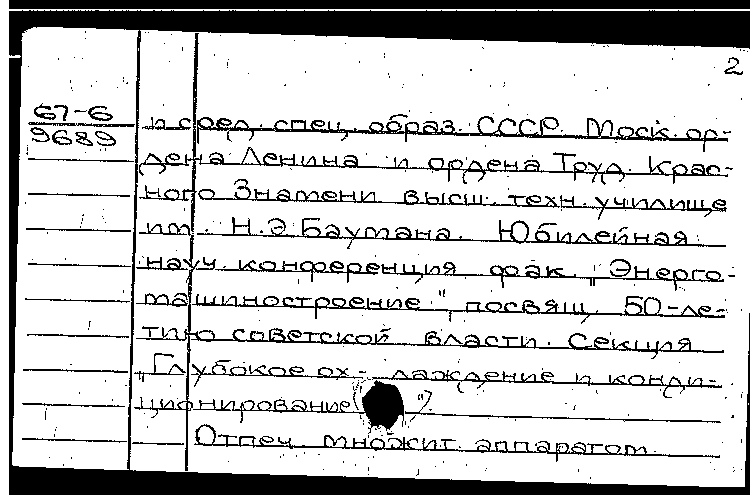 2
67-6
9689
и сред. спец. образ. СССР. Моск. ор-
дена Ленина и ордена Труд. Крас-
ного Знамени высш. техн. училище
им. Н.Э.Баумана. Юбилейная
науч. конференция фак. "Энерго-
машиностроение", посвящ. 50-ле-
тию советской власти. Секция
"Глубокое ох- лаждение и конди-
ционирование")
Отпеч. множит. аппаратом.